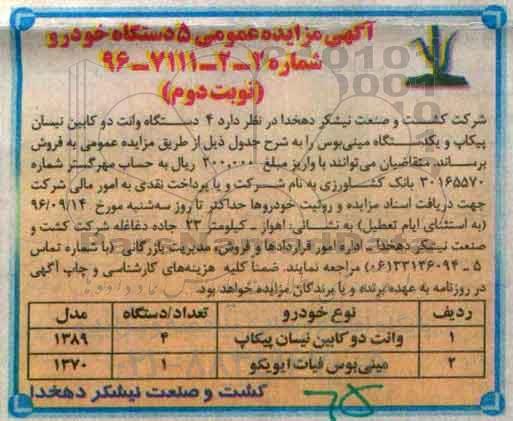 آگهی مزایده عمومی ۵ دستگاه خودرو
شماره ۲-۲-۷۱۱۱-۹۶
(نوبت دوم)
شرکت کشت و صنعت نیشکر دهخدا در نظر دارد ۴ دستگاه وانت دو کابین نیسان
پیکاپ و یکدستگاه مینی‌بوس را به شرح جدول ذیل از طریق مزایده عمومی به فروش
برساند. متقاضیان می‌توانند با واریز مبلغ ۲۰۰،۰۰۰ ریال به حساب مهرگستر شماره
۳۰۱۶۵۵۷۰ بانک کشاورزی به نام شرکت و یا پرداخت نقدی به امور مالی شرکت
جهت دریافت اسناد مزایده و روئیت خودروها حداکثر تا روز سه‌شنبه مورخ ۹۶/۰۹/۱۴
(به استثنای ایام تعطیل) به نشانی: اهواز ـ کیلومتر ۲۳ جاده دغاغله شرکت کشت و
صنعت نیشکر دهخدا ـ اداره امور قراردادها و فروش، مدیریت بازرگانی (با شماره تماس
۵ ـ ۰۶۱۳۳۱۳۶۰۹۴) مراجعه نمایند. ضمناً کلیه هزینه‌های کارشناسی و چاپ آگهی
در روزنامه به عهده برنده و یا برندگان مزایده خواهد بود.
ردیف نوع خودرو تعداد/دستگاه مدل
۱ وانت دو کابین نیسان پیکاپ ۴ ۱۳۸۹
۲ مینی‌بوس فیات ایویکو ۱ ۱۳۷۰
کشت و صنعت نیشکر دهخدا